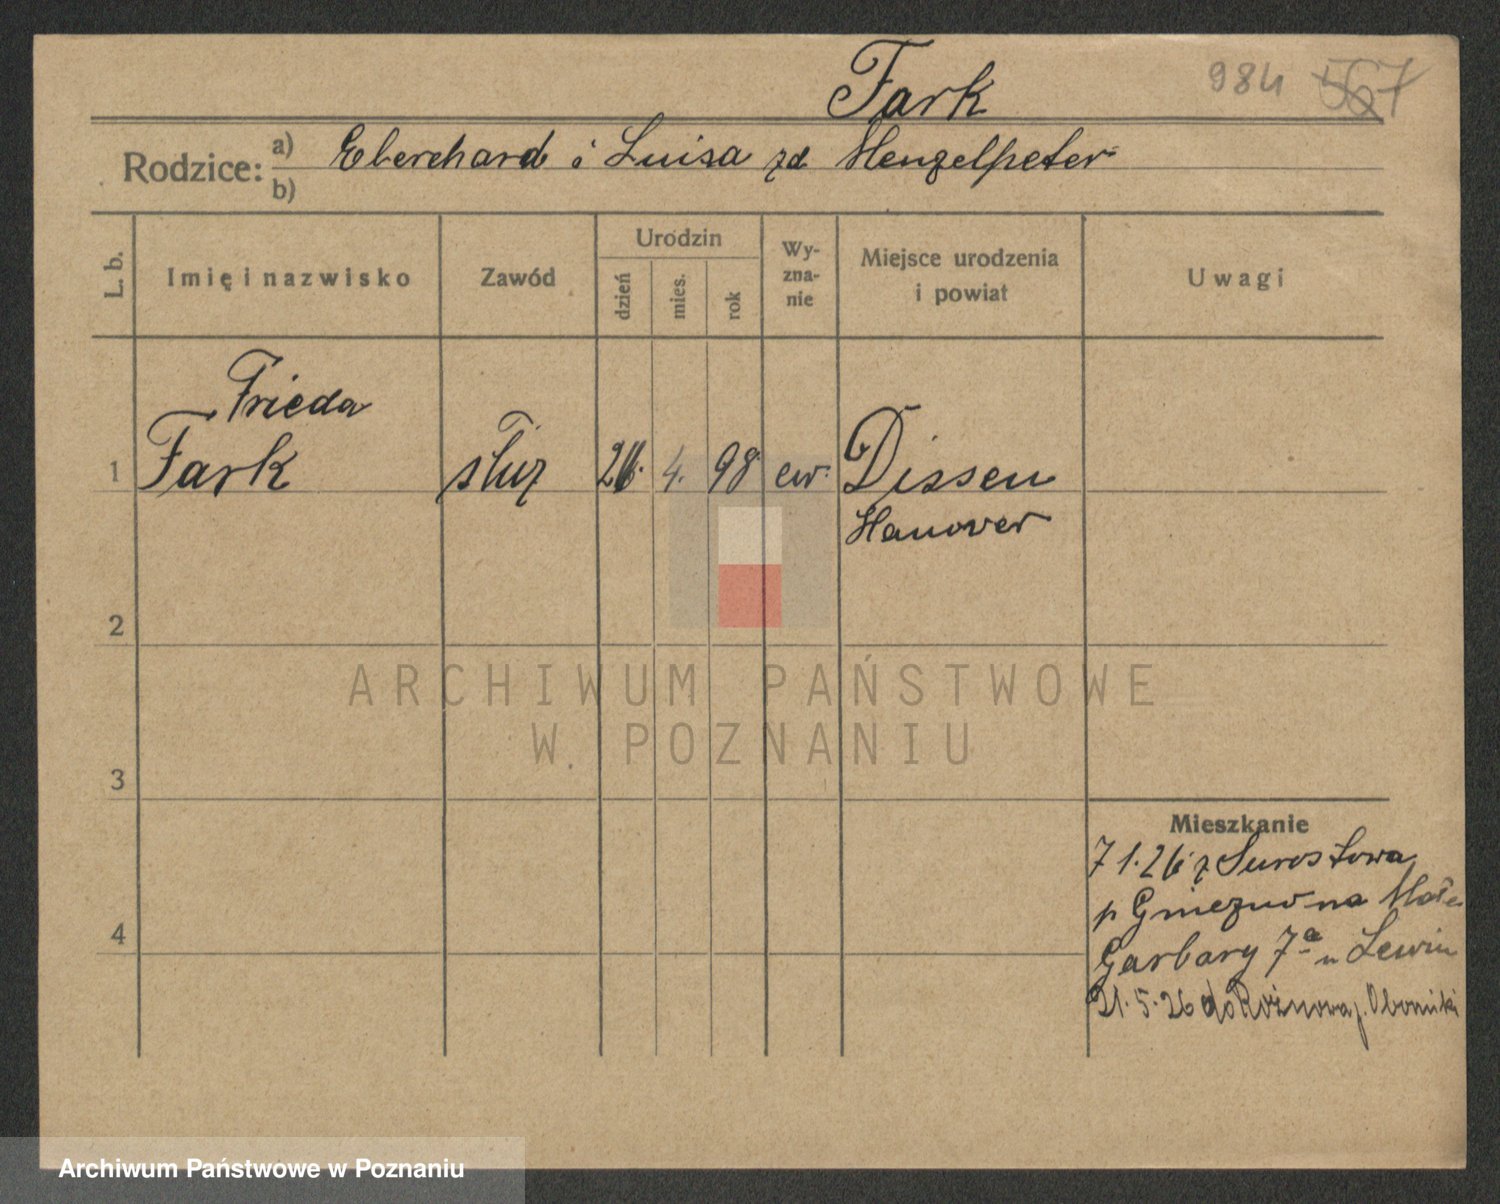 Fark
984 567
Rodzice: a) Eberchard i Luisa zd Hengelpeter
b)
L. b.
Imię i nazwisko
Zawód
Urodzin
dzień
mies.
rok
Wy-
zna-
nie
Miejsce urodzenia
i powiat
Uwagi
Frieda
1 Fark służ 4. 98 ew. Dissen
Hanover
2
ARCHIWUM PAŃSTWOWE
W POZNANIU
3
Mieszkanie
7 1. 26 z Surostowa
p Gniezno na Małe
4
Garbary 7a u Lewin
21. 5. 26 do Rożnowa p. Oborniki
Archiwum Państwowe w Poznaniu